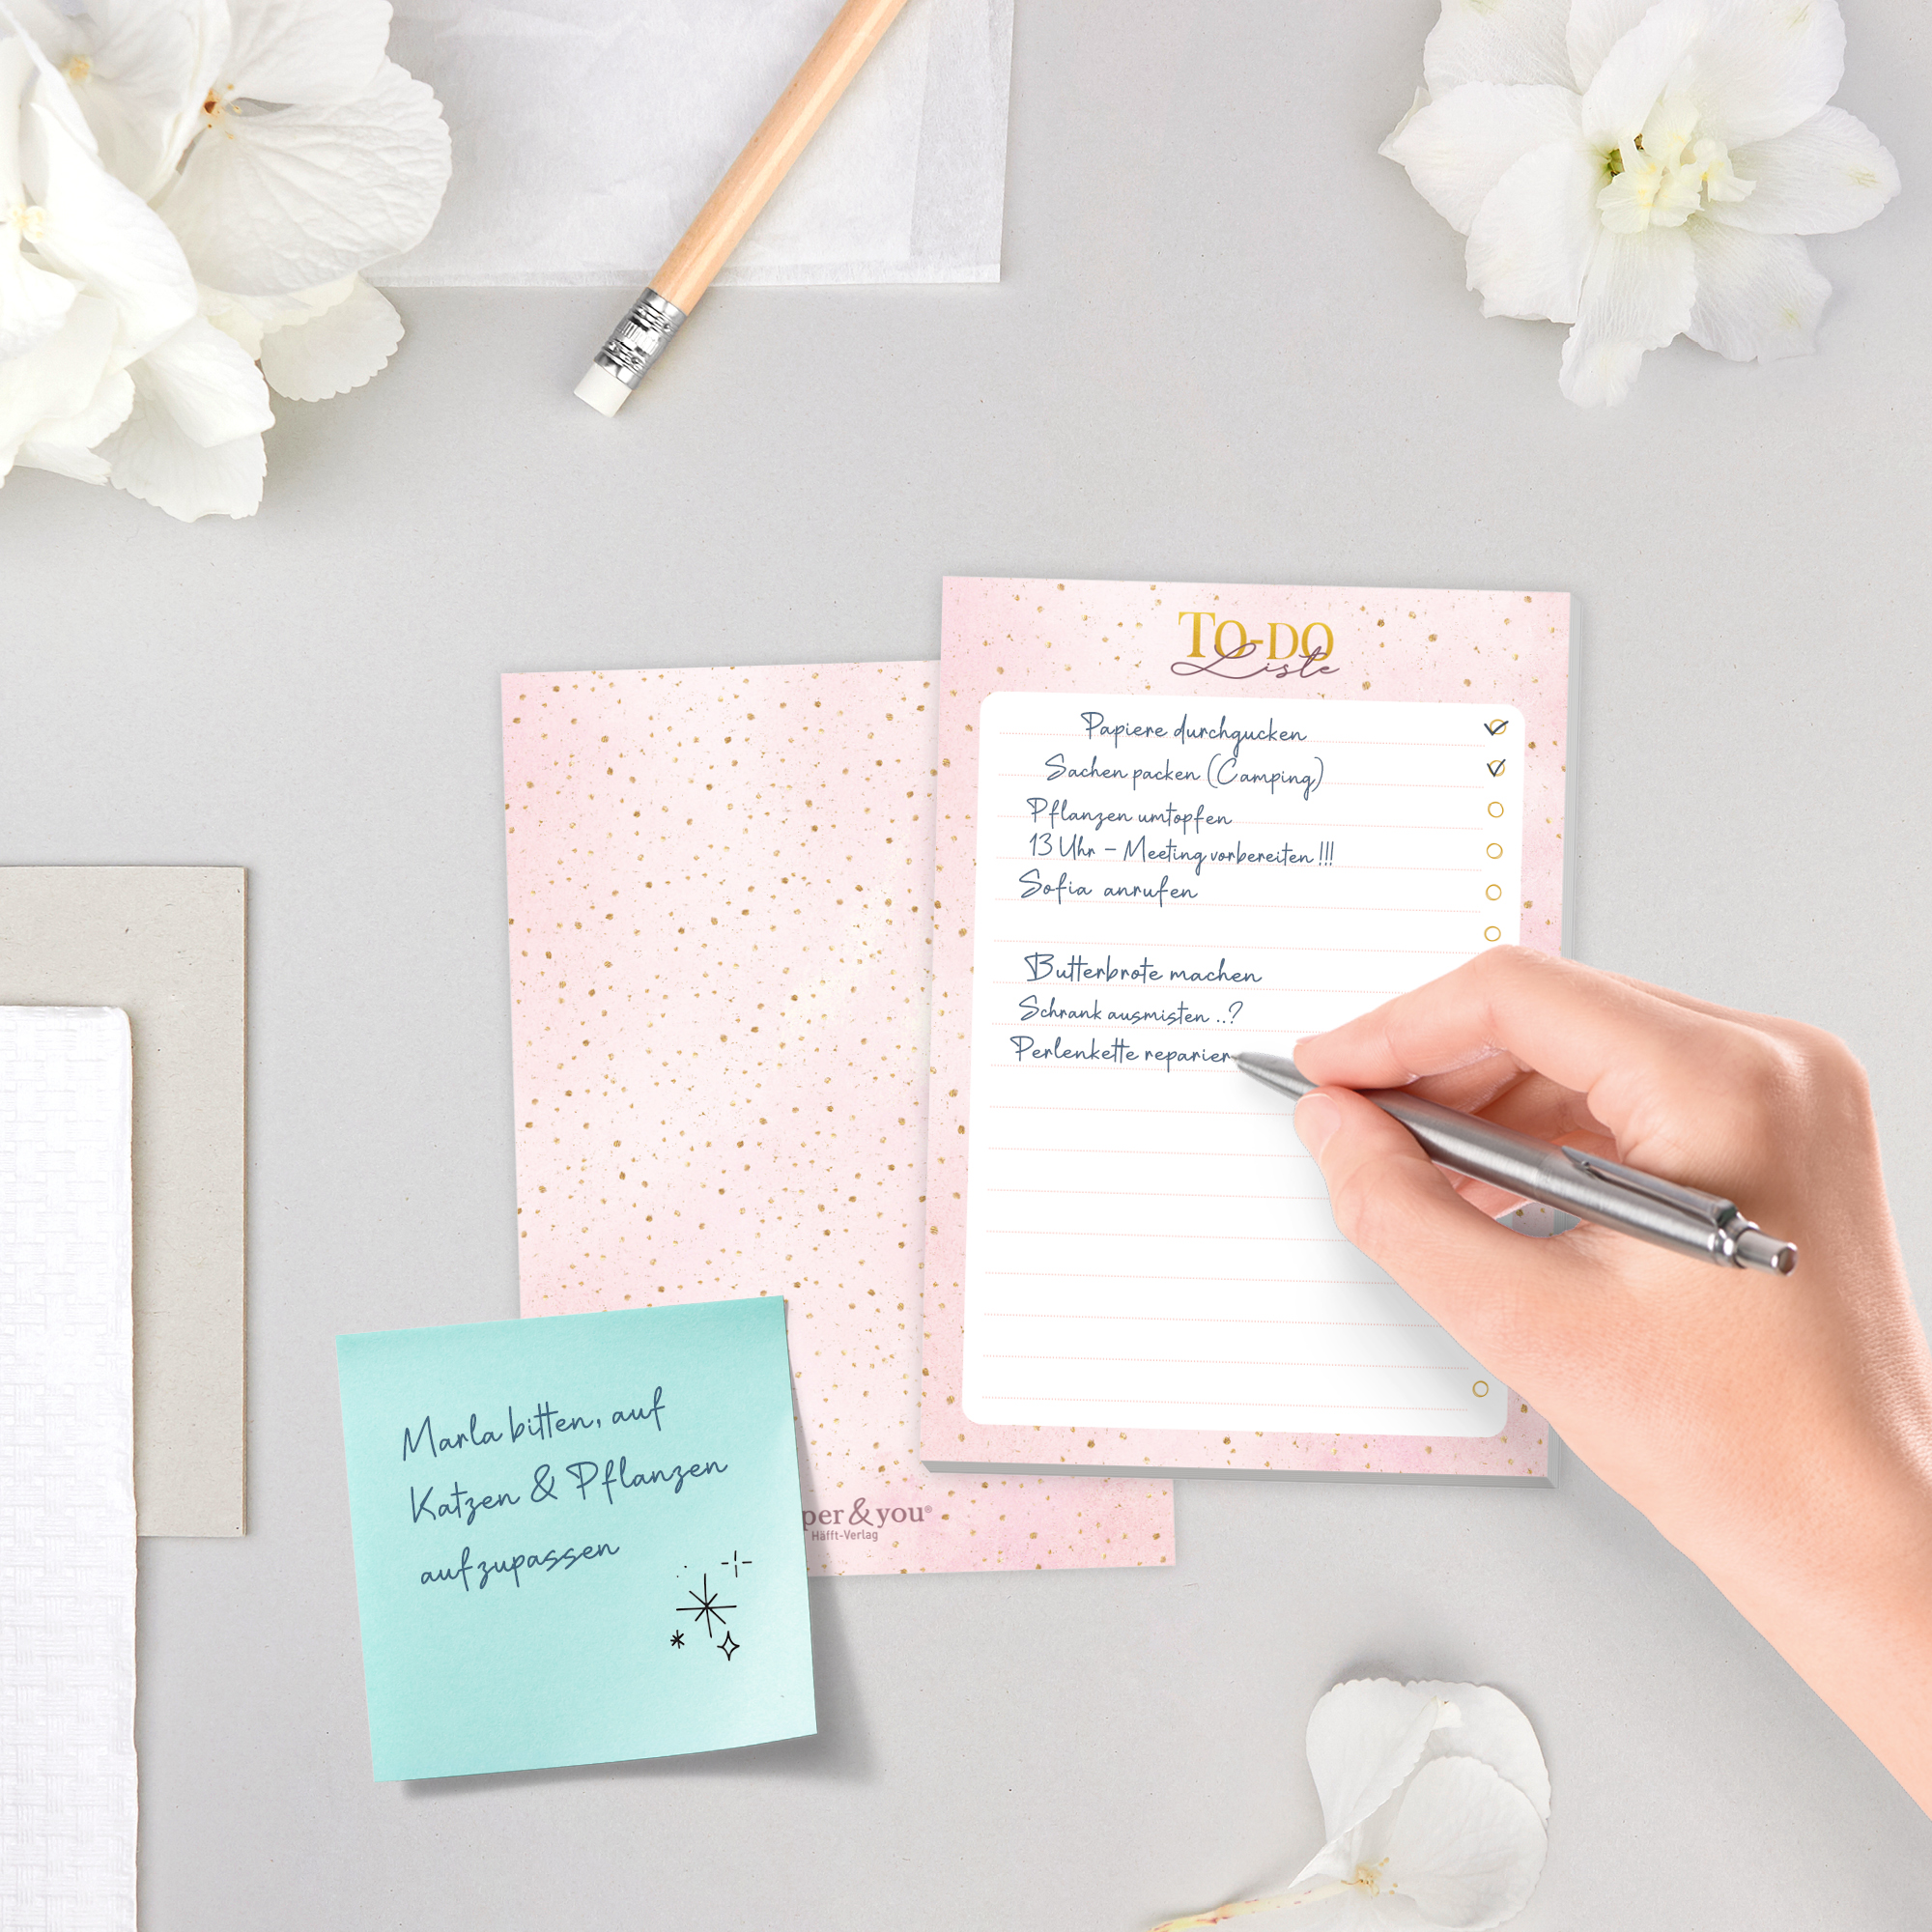 TO-DO
Liste
Papiere durchgucken
Sachen packen (Camping)
Pflanzen umtopfen
13 Uhr - Meeting vorbereiten !!!
Sofia anrufen
Butterbrote machen
Schrank ausmisten ..?
Perlenkette reparier
Marla bitten, auf
Katzen & Pflanzen
aufzupassen
per & you®
Häfft-Verlag